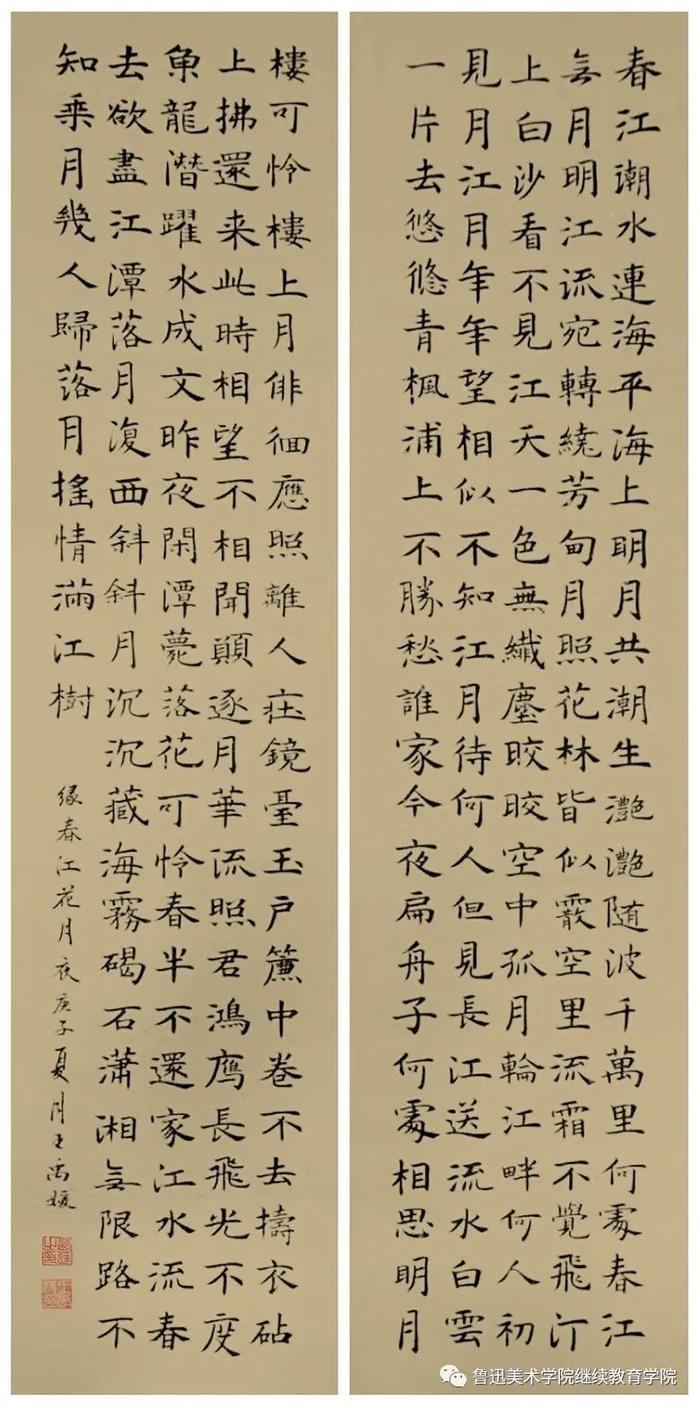 春江潮水連海平海上明月共潮生灔灔随波千萬里何處春江
無月明江流宛轉繞芳甸月照花林皆似霰空里流霜不覺飛汀
上白沙看不見江天一色無纖塵皎皎空中孤月輪江畔何人初
見月江月年年望相似不知江月待何人但見長江送流水白雲
一片去悠悠青楓浦上不勝愁誰家今夜扁舟子何處相思明月
樓可怜樓上月俳徊應照離人鏡臺玉户簾中卷不去擣衣砧
上拂還来此時相望不相聞顚逐月華流照君鴻鴈長飛光不度
魚龍潛躍水成文昨夜閑潭夢落花可怜春半不還家江水流春
去欲盡江潭落月復西斜斜月沉沉藏海霧碣石瀟湘無限路不
知乘月幾人歸落月摇情滿江樹
緣春江花月夜庚子夏月王禹媛
鲁迅美术学院继续教育学院